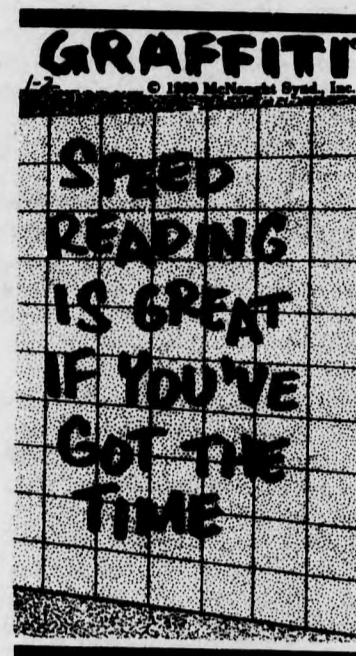 GRAFFITI
1-2
© McNaught Synd., Inc.
SPEED
READING
IS GREAT
IF YOU'VE
GOT THE
TIME